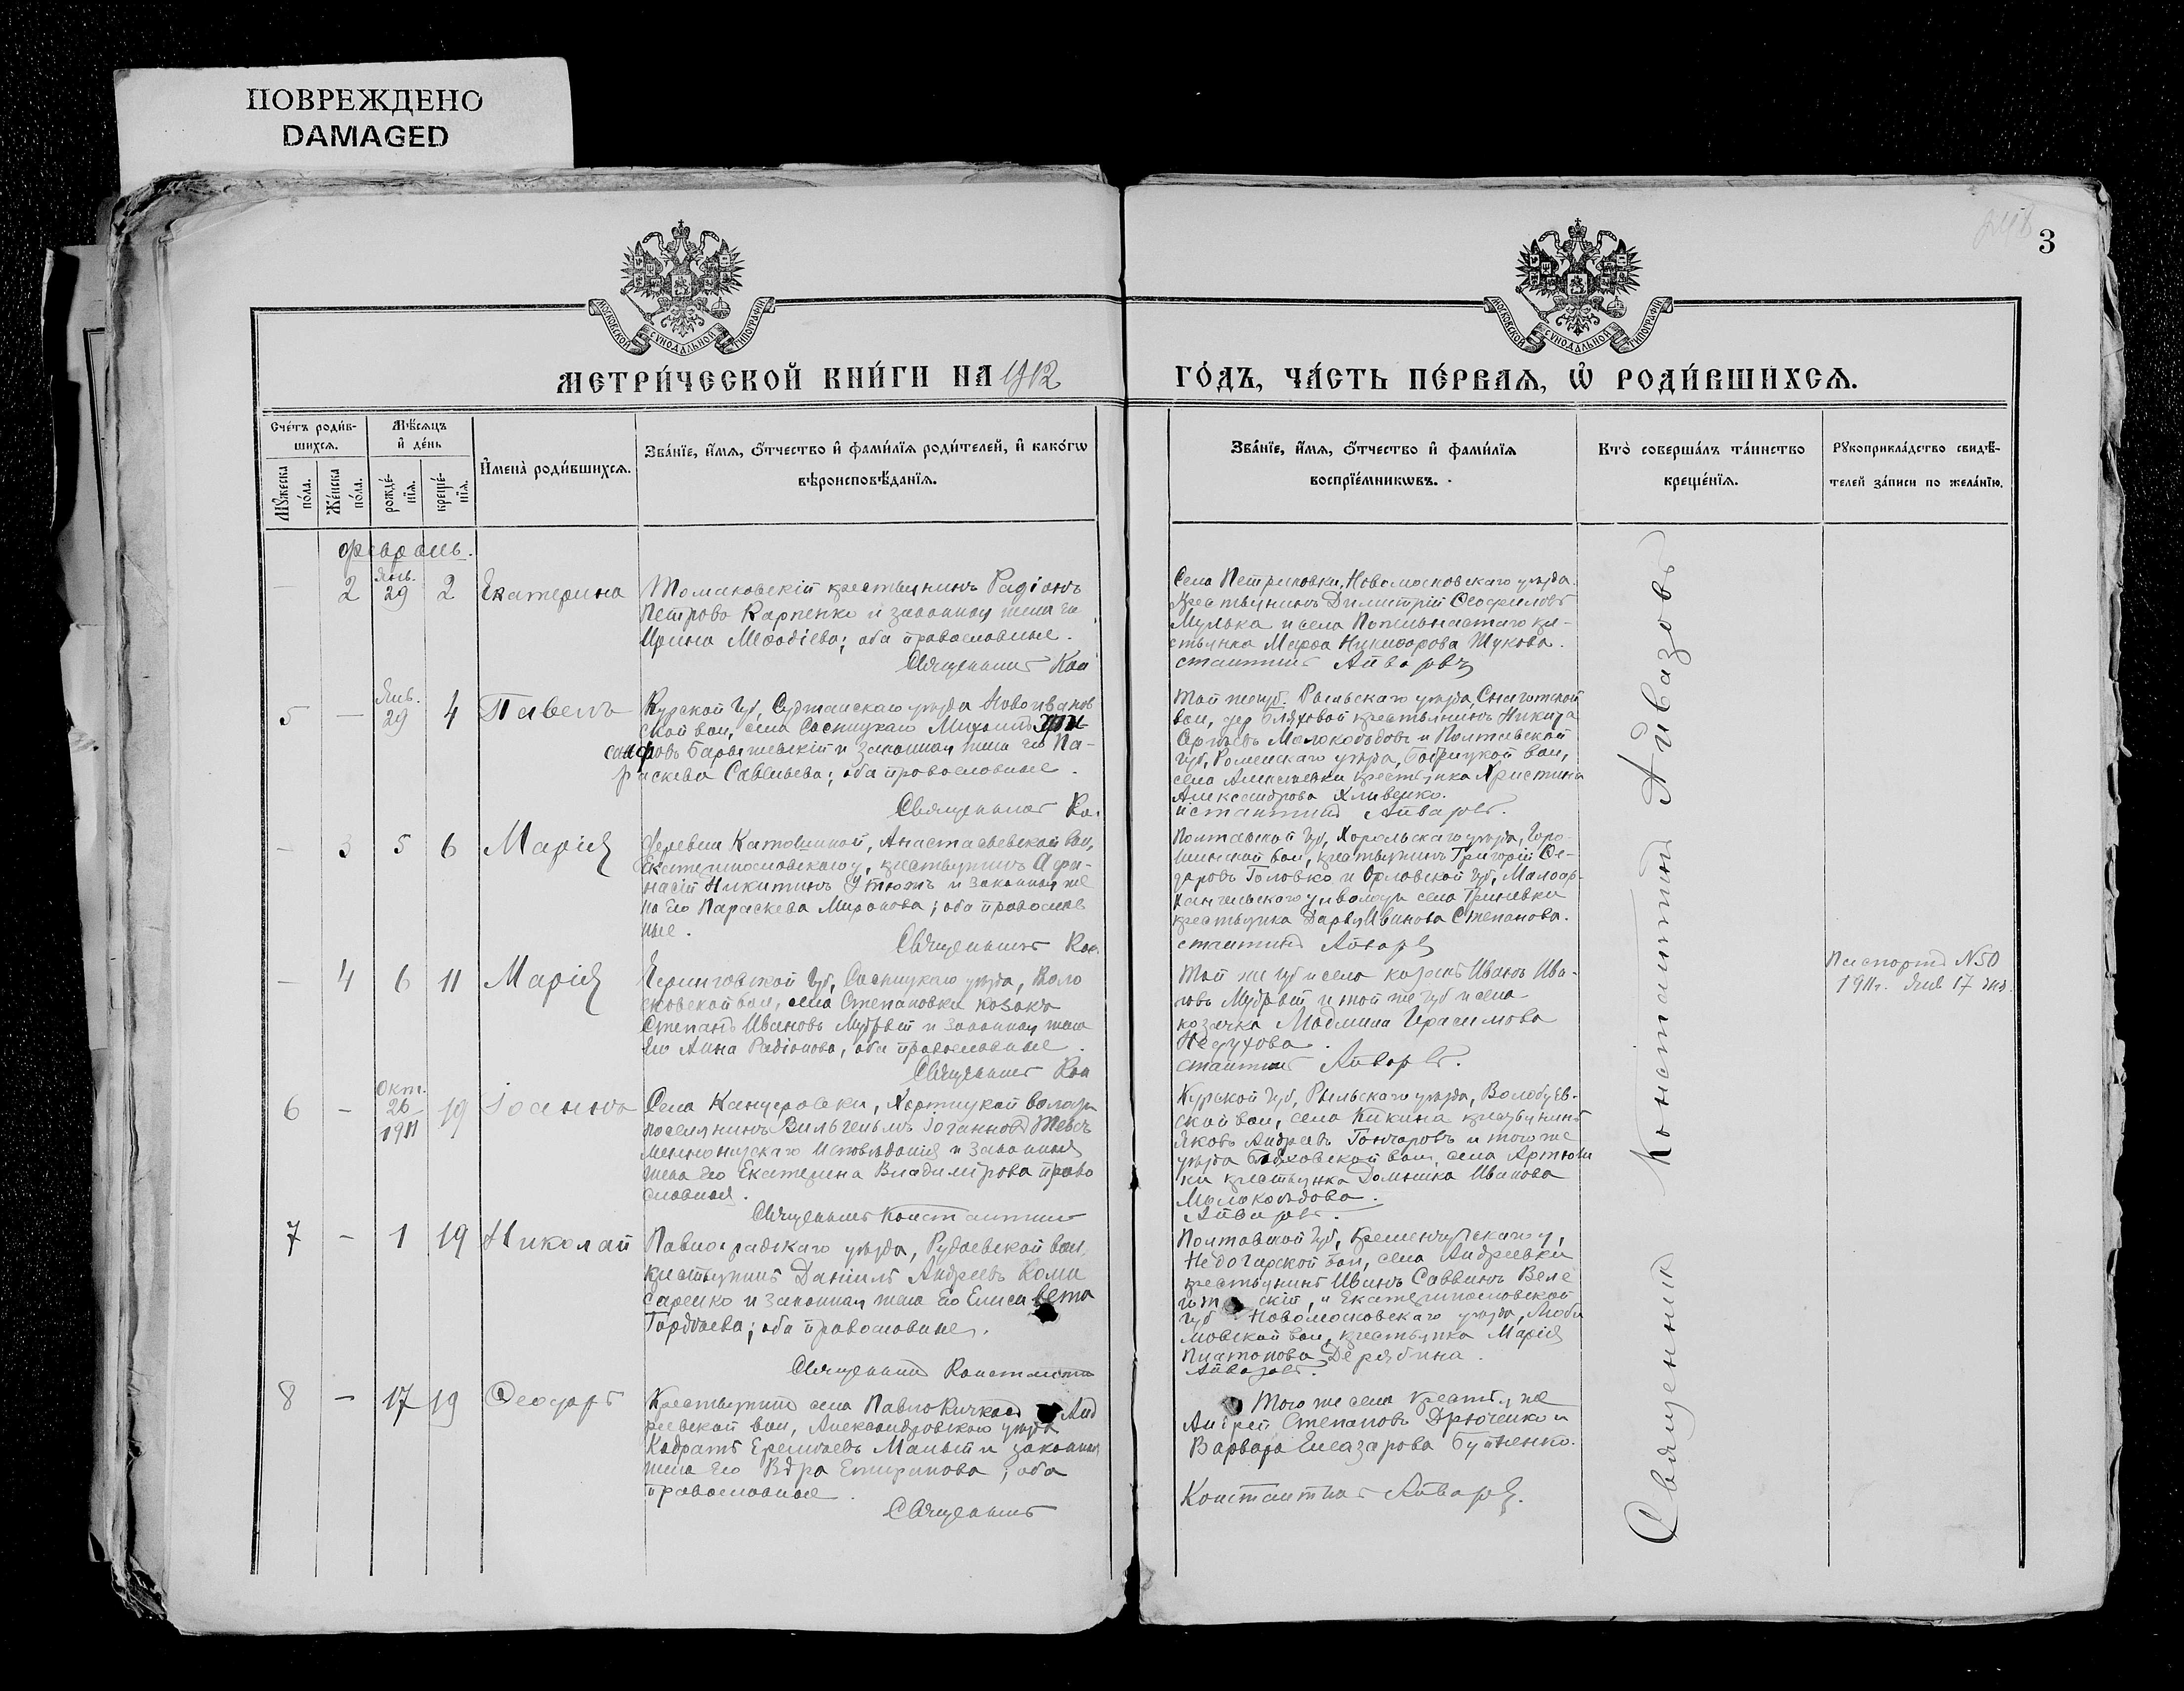 ПОВРЕЖДЕНО
DAMAGED
3
МОСКОВСКОЙ СУНОДАЛЬНОЙ ТИПОГРАФІИ
МОСКОВСКОЙ СУНОДАЛЬНОЙ ТИПОГРАФІИ
МЕТРИ́ЧЕСКОЙ КНИ́ГИ НА 1912
ГО́ДЪ, ЧА́СТЬ ПЕ́РВАѦ, Ѡ РОДИ́ВШИХСѦ.
Сче́тъ роди́в-
шихсѧ.
Мѣ́сѧцъ
и҆ де́нь
Мꙋ́жеска
по́ла.
Же́нска
по́ла.
рожде́-
нїѧ.
креще́-
нїѧ.
И҆мена̀ роди́вшихсѧ.
Зва́нїе, и҆́мѧ, ѻ҆́тчество и҆ фами́лїѧ роди́телей, и҆ како́гѡ
вѣроисповѣ́данїѧ.
Зва́нїе, и҆́мѧ, ѻ҆́тчество и҆ фами́лїѧ
воспрїе́мникѡвъ.
Кто̀ соверша́лъ та́инство
креще́нїѧ.
Рꙋкоприкла́дство свидѣ́-
телей за́писи по жела́нїю.
Февраль.
— 2 Янв. 29 2 Екатерина
Томаковскій крестьянинъ Радіонъ
Петровъ Карпенко и законная жена его
Ирина Меѳодіева; оба православные.
Священникъ Кон
Села Петриковки, Новомосковскаго уѣзда
крестьянинъ Димитрій Ѳеофиловъ
Мулька и села кре-
стьянка Марѳа Никифорова Жукова.
стантинъ Айвазовъ
5 — Янв. 29 4 Павелъ
Курской губ, Суджанскаго уѣзда Новоиванов
ской вол, села Михаилъ
Барышевскій и законная жена его Па-
раскева Савельева; оба православные.
Священникъ Ко.
Той же губ. Рыльскаго уѣзда, Снагостской
вол, дер. крестьянинъ Никита
Молокоѣдовъ и Полтавской
губ, Роменскаго уѣзда, вол,
села Алексѣевки крестьянка Христина
Александрова Хливенко.
нстантинъ Айвазовъ.
— 3 5 6 Марія
Деревни Катовиной, Анастасьевской вол,
Екатеринославскаго у, крестьянинъ Афа-
насій Никитинъ Утюжъ и законная же
на его Параскева Миронова; оба православ
ные.
Священникъ Кон.
Полтавской губ, Хорольскаго уѣзда, Горо-
шинской вол, крестьянинъ Григорій Ѳе-
доровъ Головко и Орловской губ, Малоар-
хангельскаго у села Гриневки
крестьянка Дарья Иванова Степанова.
стантинъ Айвазовъ
— 4 6 11 Марія
Черниговской губ, Сосницкаго уѣзда, Воло
сковской вол, села Степановки козакъ
Степанъ Ивановъ Мудрый и законная жена
его Анна Радіонова, оба православные.
Священникъ Кон
Той же губ и села козакъ Иванъ Ива-
новъ Мудрый и той же губ и села
козачка Герасимова
стантинъ Айвазовъ.
Паспортъ N 50
1911г. Янв 17 дня.
6 — Окт. 26 1911 19 Іоаннъ
Села Канцеровки, Хортицкой волости
поселянинъ Вильгельмъ Іоганновъ Тевсъ
меннонитскаго исповѣданія и законная
жена его Екатерина Владимірова право
славная.
Священникъ Константинъ
Курской губ, Рыльскаго уѣзда, Волобуев-
ской вол, села Кикина крестьянинъ
Яковъ Андреевъ Гончаровъ и того же
уѣзда вол, села Артюш
ки крестьянка Домника Иванова
Молокоѣдова.
Айвазовъ.
7 — 1 19 Николай
Павлоградскаго уѣзда, вол,
крестьянинъ Даніилъ Андреевъ Коми
саренко и законная жена его Елисавета
Гордѣева; оба православные.
Священникъ Константинъ
Полтавской губ, Кременчугскаго у,
Недогарской вол, села Андреевки
крестьянинъ Иванъ Саввинъ Веле
скій, и Екатеринославской
губ Новомосковскаго уѣзда, Люби
мовской вол, крестьянка Марія
Платонова Дерябина.
Айвазовъ.
8 — 17 19 Ѳеодоръ
Крестьянинъ села Павло Кичкасъ Анд
реевской вол, Александровскаго уѣзда
Кодратъ Еремѣевъ Малый и законная
жена его Вѣра; оба
православные.
Священникъ
Того же села крестьяне
Андрей Степановъ Дрюченко и
Варвара Елеазарова Бутненко.
Константинъ Айвазовъ.
Священникъ Константинъ Айвазовъ